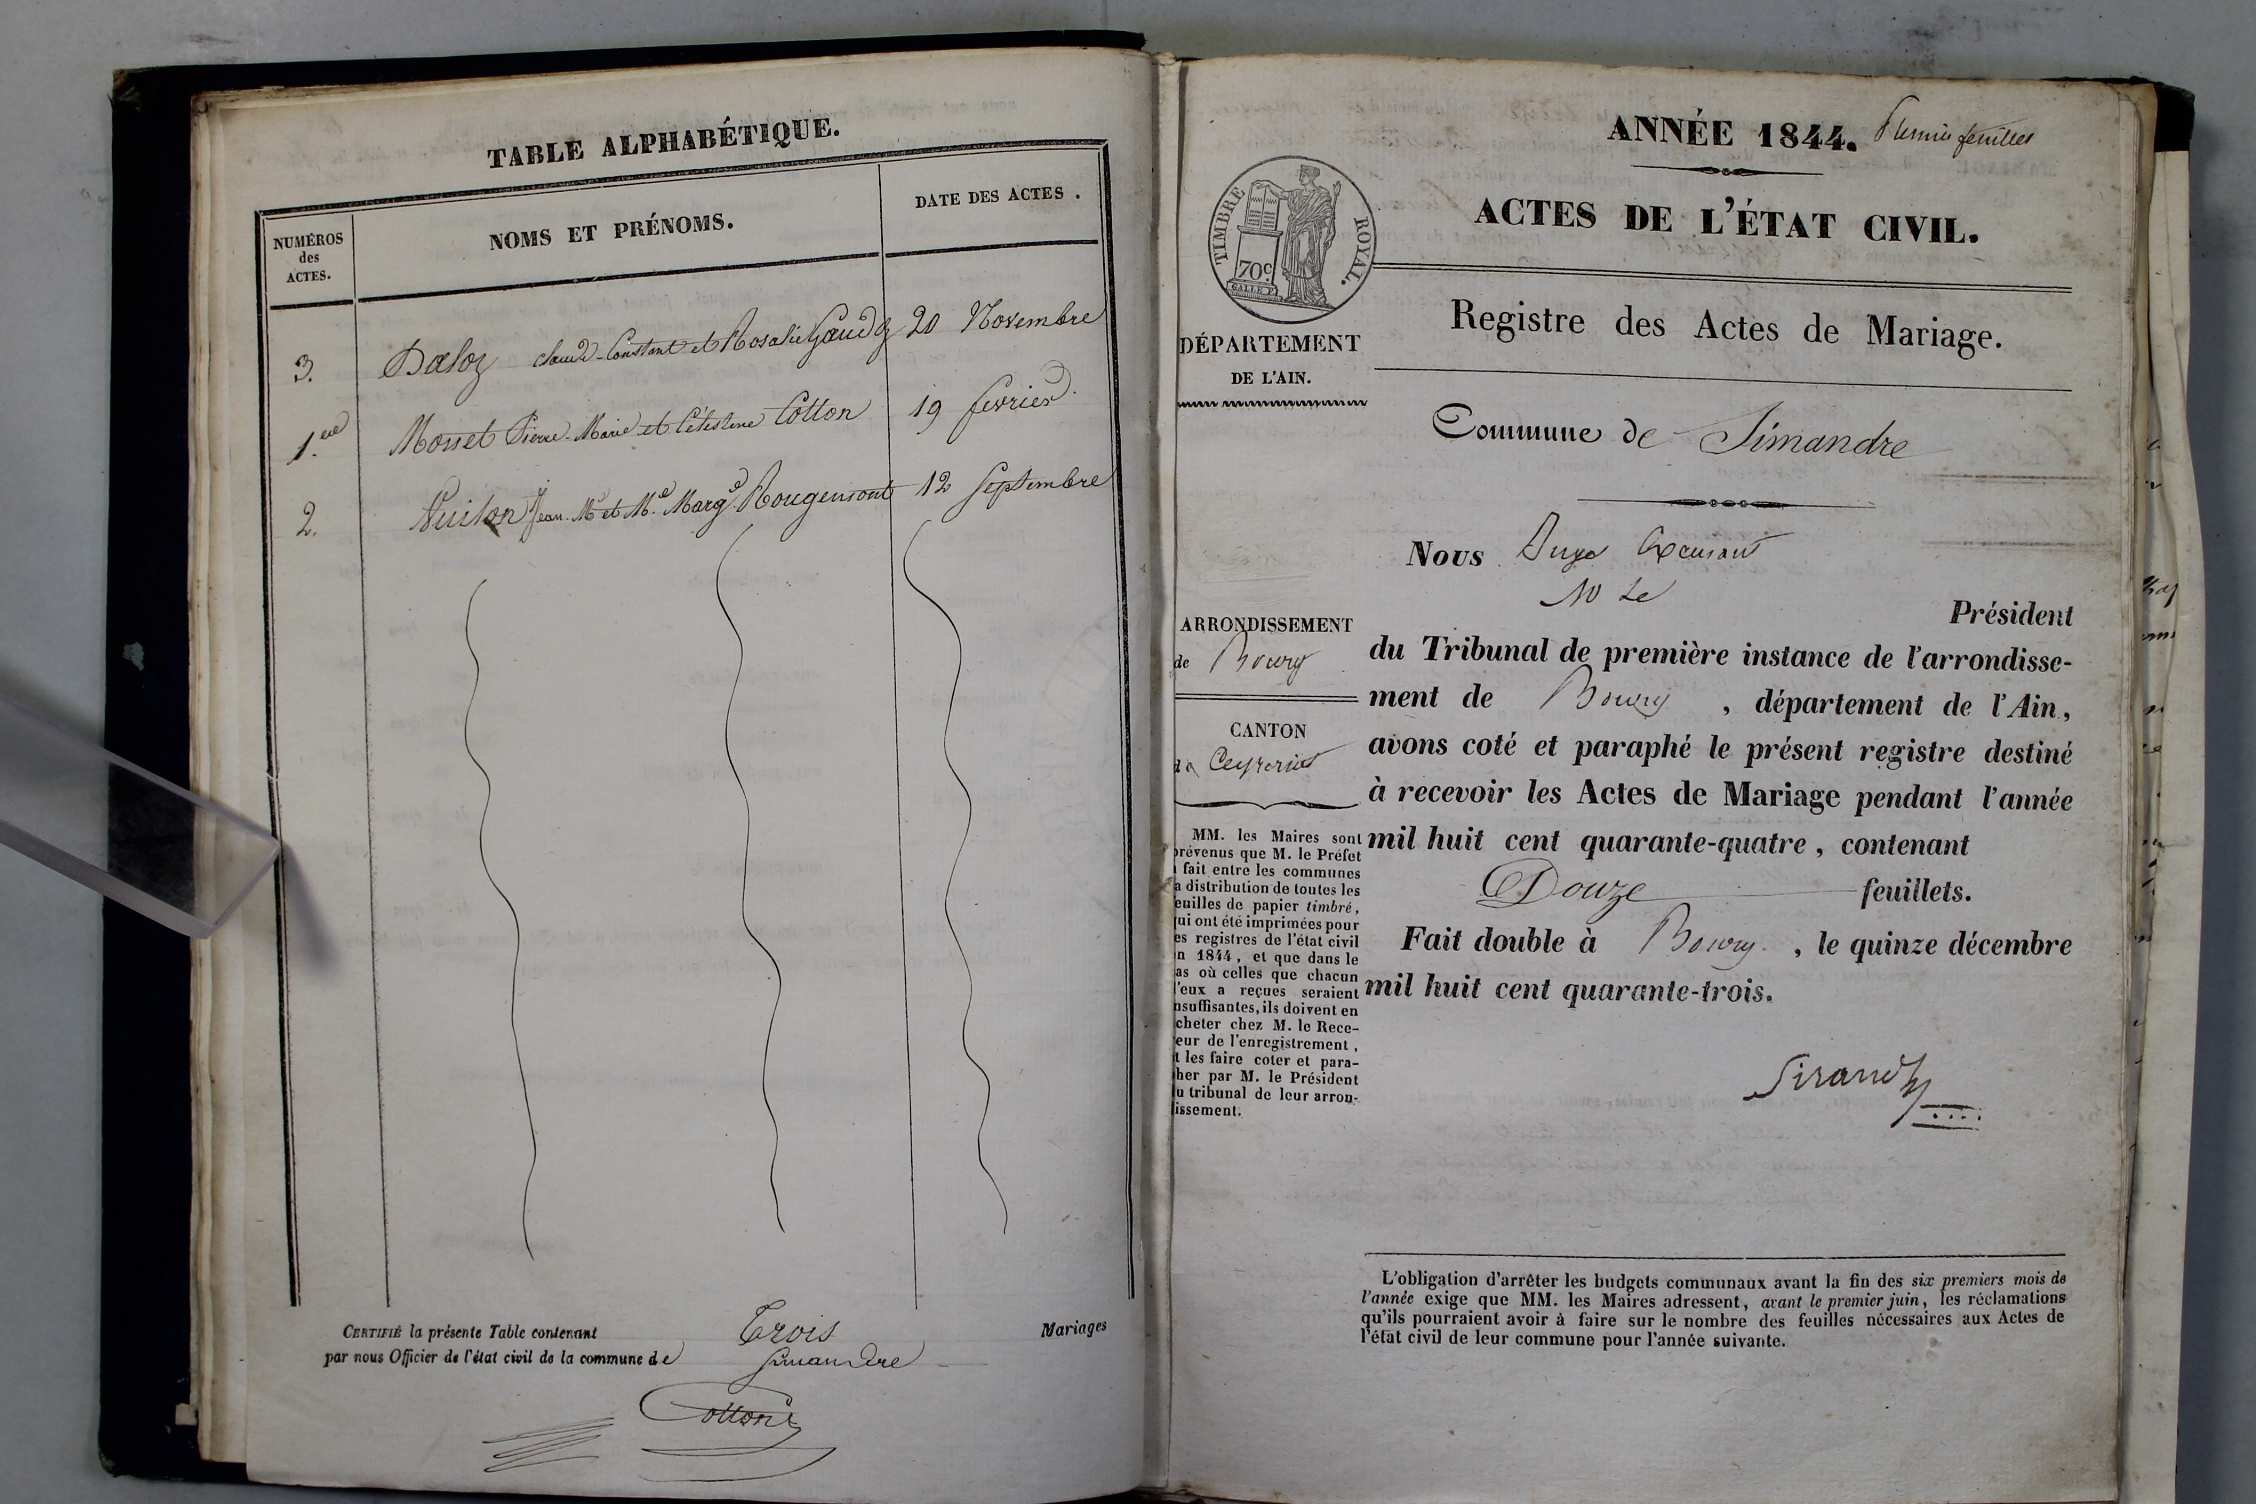 TABLE ALPHABÉTIQUE.
NUMÉROS
des
ACTES.
NOMS ET PRÉNOMS.
DATE DES ACTES.
3. Daloz Claude-Constant et Rosalie 20 Novembre
1.ere Pierre-Marie et Célestine Cotton 19 fevrier.
2. Vuiton Jean-M.e et M.e Marg.e Rougemont 12 Septembre
CERTIFIÉ la présente Table contenant Trois Mariages
par nous Officier de l'état civil de la commune de Simandre
Cotton
ANNÉE 1844. feuillet
ACTES DE L'ÉTAT CIVIL.
TIMBRE ROYAL.
70c.
GALLE F.
Registre des Actes de Mariage.
DÉPARTEMENT
DE L'AIN.
Commune de Simandre
Nous Juge
Président
ARRONDISSEMENT
de Bourg
CANTON
de Ceyzeriat
MM. les Maires sont
prévenus que M. le Préfet
fait entre les communes
a distribution de toutes les
euilles de papier timbré,
ui ont été imprimées pour
es registres de l'état civil
n 1844, et que dans le
as où celles que chacun
'eux a reçues seraient
nsuffisantes, ils doivent en
cheter chez M. le Rece-
eur de l'enregistrement,
t les faire coter et para-
her par M. le Président
u tribunal de leur arron-
issement.
du Tribunal de première instance de l'arrondisse-
ment de Bourg, département de l'Ain,
avons coté et paraphé le présent registre destiné
à recevoir les Actes de Mariage pendant l'année
mil huit cent quarante-quatre, contenant
Douze feuillets.
Fait double à Bourg, le quinze décembre
mil huit cent quarante-trois.
Sirand
L'obligation d'arrêter les budgets communaux avant la fin des six premiers mois de
l'année exige que MM. les Maires adressent, avant le premier juin, les réclamations
qu'ils pourraient avoir à faire sur le nombre des feuilles nécessaires aux Actes de
l'état civil de leur commune pour l'année suivante.